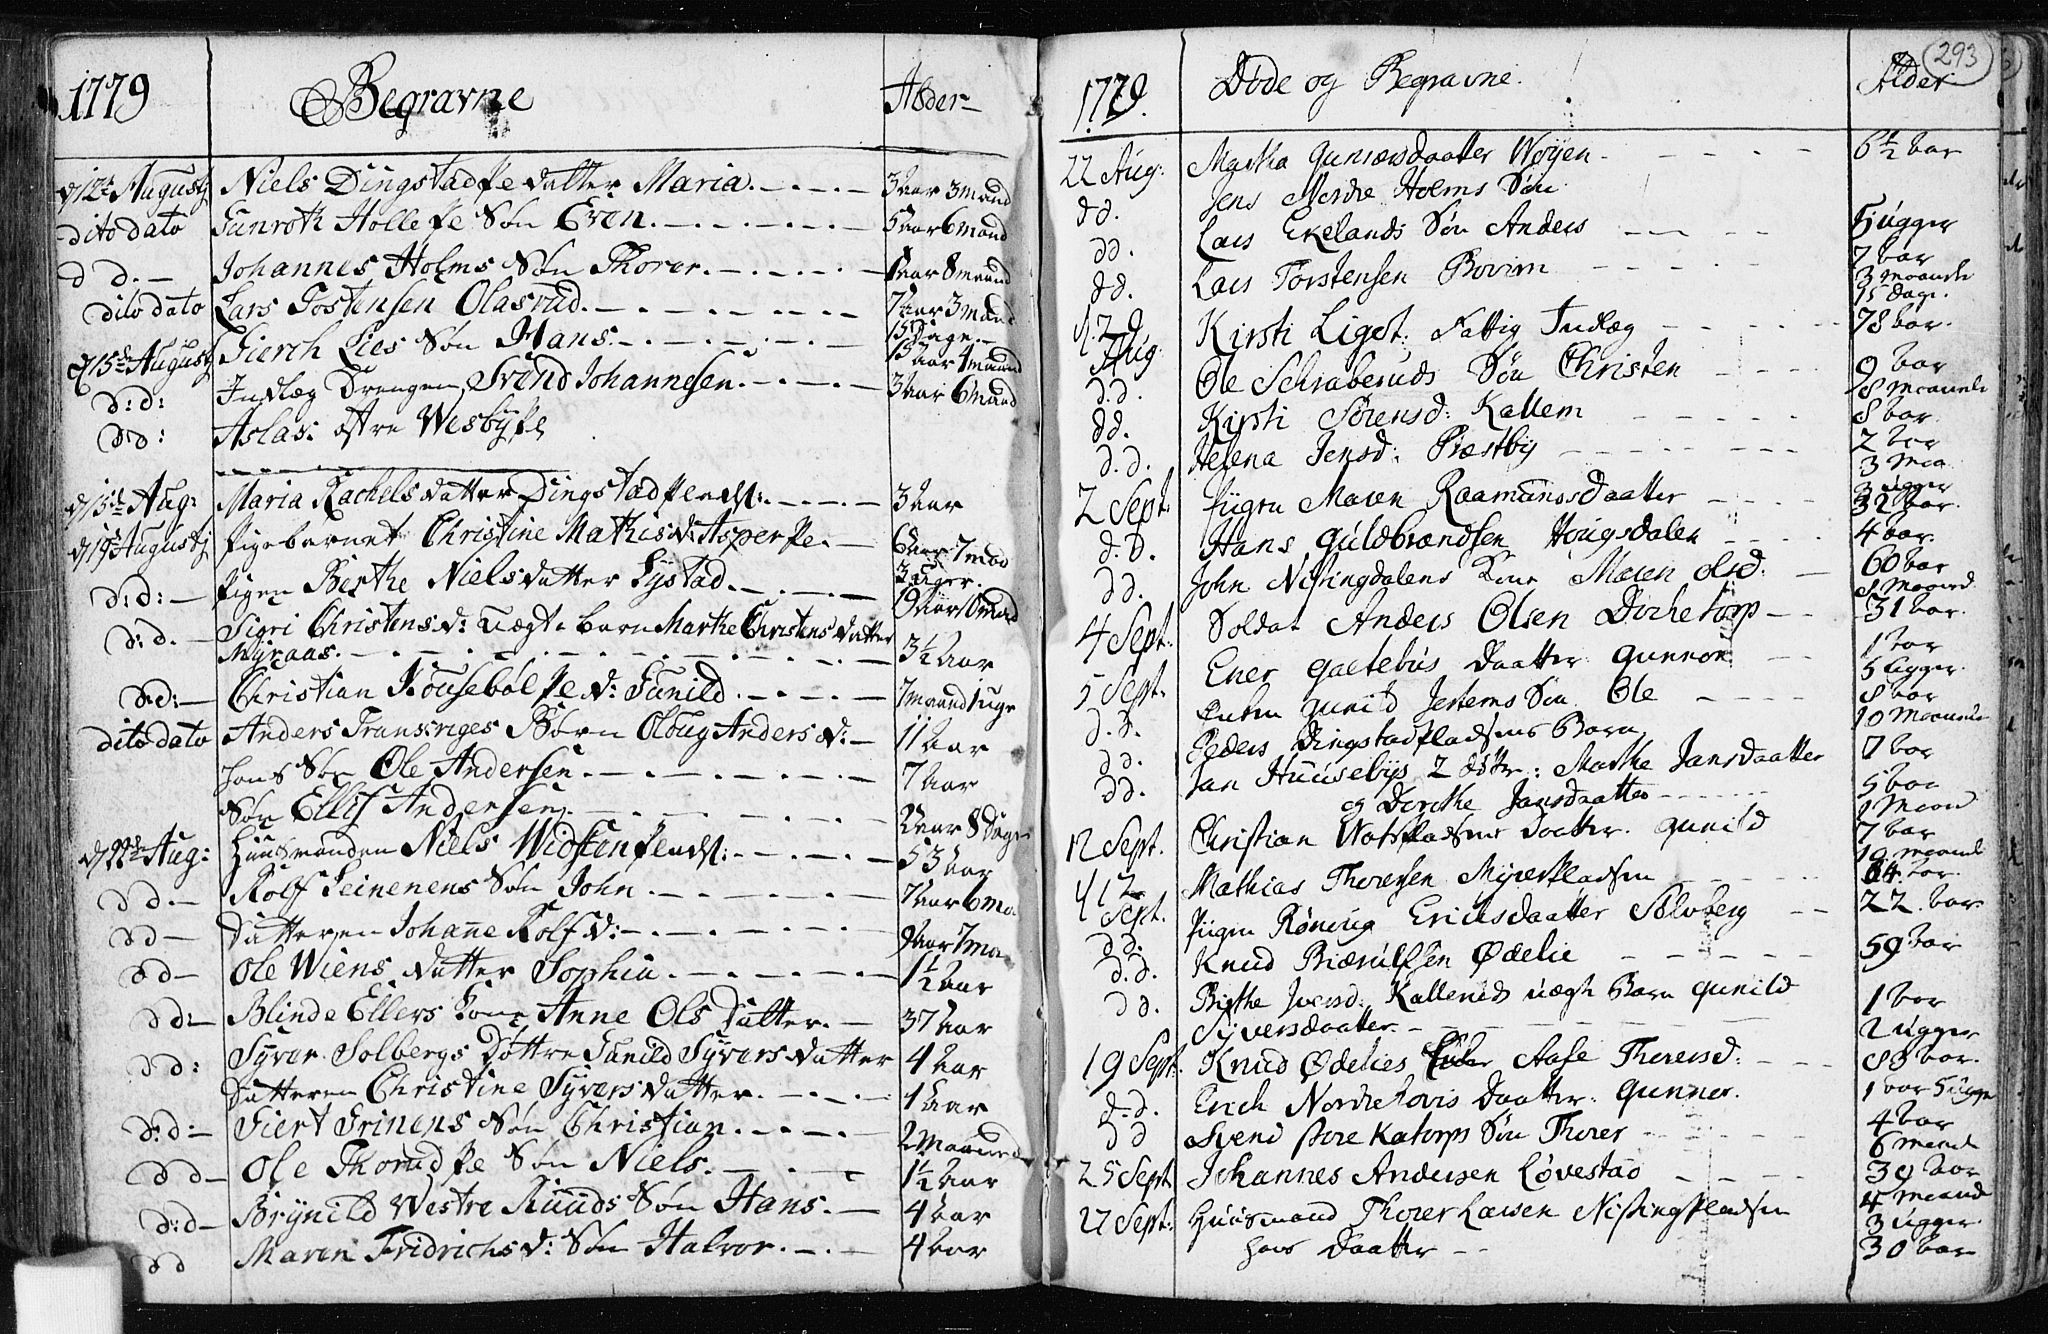 1779 Begravne Alder
d 12te Augustj Niels Dingstad Ps datter Maria. 3 aar 3 maand
dito dato Gunroth Holle Ps Søn Even. 5 aar 6 mand
d d. Johannes Holms Søn Thorer. 1 aar 8 maand
dito dato Lars Tostensen Olasrud. 7 aar 3 mand
15 Dage.
d 15de Augustj Fierch Lies Søn Hans.
d: d: Indlæg Drengen Svend Johannesen. 15 aar 1 maand
dd: Aslas: østre Wesby Ps 3 aar 6 maand
d 15de Aug: Maria Rachels datter Dingstad Ps 3 aar
d 19de Augustj Pigebarnet Christine Mathis d: Asper Ps. 6 aar 7 mod
3 uger.
d: d: Pigen Birthe Niels datter Lystad. 19 aar 10 maand
d: d. Sigri Christens d: uægte barn Marthe Christens datter
Myraas. 3½ aar
d: d: Christian Kousebøl Ps d: Gunild 7 maand 1 uge
dito dato Anders Transriges Børn Oloug Anders d: 11 aar
hans Søn Ole Andersen. 7 aar
Søn Ellif Andersen. 2 aar 8 dage
d 22de Aug: Huusmanden Niels Widsten 53 aar
d d. Rolf Seinenens Søn John 7 aar 6 mo.
d d Datteren Johane Rolfs d: 9 aar 7 mo
d d Ole Wiens datter Sophia. 1½ aar
d d: Blinde Ellers Kone Anne Ols Datter. 37 aar
d d: Syver Solbergs Døttre Gunild Syvers datter 4 aar
Datteren Christine Syvers datter. 1 aar
d: d: Fiert Trinens Søn Christian. 2 Maaned
d d Ole Thorud Ps Søn Niels. 1½ aar
d: d Brynild Westre Ruuds Søn Hans. 4 aar
d d Maren Fridrichs d: Søn Halvor. 4 aar

293
1779. Døde og Begravne. Alder
22 Aug: Martha Gunersdaatter Woyen 6½ aar
d d. Jens Nordre Holms Søn
d d. Lars Ekelands Søn Anders 5 ugger
d d. Lars Torstensen Bovim 7 aar
3 maaneder
15 dage.
d. 29 Aug: Kirsti Liget: Fattig Indlæg 78 aar.
d. d. Ole Schraberuds Søn Christen 9 aar
8 maaneder
d d. Kirsti Sørensd: Kallem 8 aar
d. d. Helena Jensd: Præstby 2 aar
3 maa
3 ugger
2 Sept: Pigen Maren Raamundsdaatter 32 aar.
d. d. Hans Guldbrandsen Hougsdalen 4 aar.
d d. John Nissingdalens Kone Maren Olsd: 60 aar
4 Sept: Soldat Anders Olsen Dochetorp 31 aar.
5 Sept. Ener Gaetebus Daatter Gunnor 1 aar
5 Ugger.
d. d. Enken Gunild Jestems Søn Ole 8 aar
10 maaneder
d d. Peders Dingstadpladsens Barn 7 aar
d d. Jan Huusebyes 2 døttr: Marthe Jansdaatter 5 aar
og Dorthe Jansdaatter
12 Sept. Christian Wolspladsens Daatter. Gunild 7 aar
d 12 Sept. Mathias Thoresen Myrerpladsen 64 aar.
d d. Pigen Rønnug Ericksdaatter Solberg 22. aar
d. d. Knud Biørulfsen Ødelie 59 aar
d d. Birthe Iversd: Kallerud uægte Barn Gunild
Syversdaatter 1 aar
2 ugger
19 Sept. Knud Ødelies Aase Thoresd: 88 aar.
d. d. Erich Nordrehovis Daatter: Gunner. 1 aar 5 ugge
d d Svend store Katorps Søn Thorer 4 aar
6 maand
25 Sept Johannes Andersen Løvestad 39 aar
4 maand
27 Sept: Huusmand Thorer Larsen Nissingspladsen 3 ugger
hans Daatter 30 aar